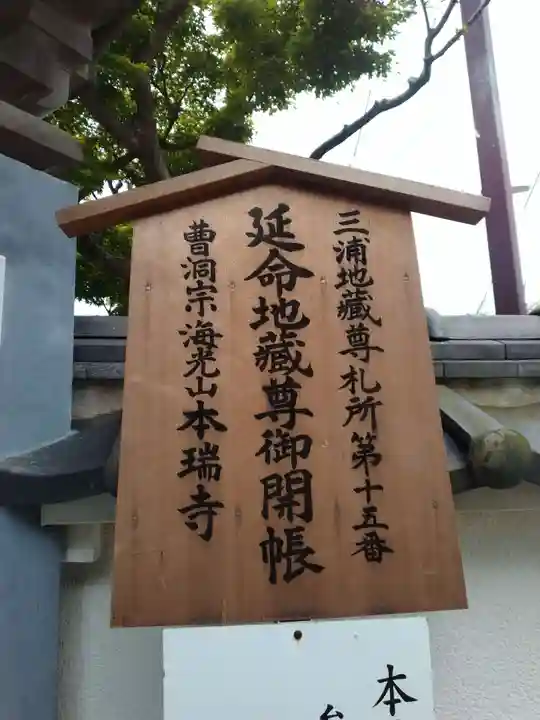 三浦地藏尊札所第十五番
延命地藏尊御開帳
曹洞宗海光山本瑞寺
本